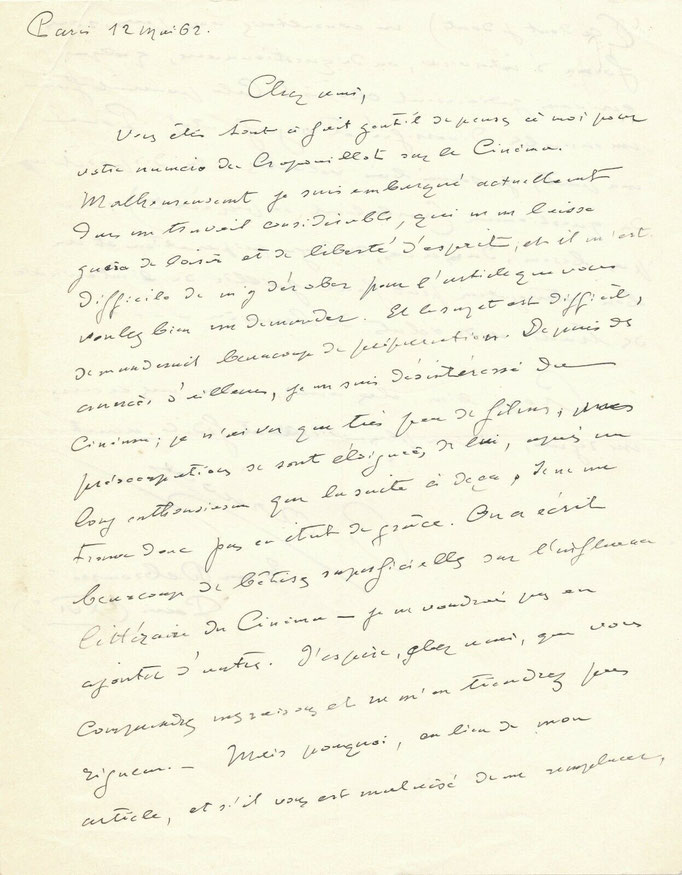 Paris 12 Mai 62.
Cher ami,
Vous êtes tout à fait gentil de penser à moi pour
votre numéro du Crapouillot sur le Cinéma.
Malheureusement je suis embarqué actuellement
dans un travail considérable, qui ne me laisse
guère de loisir et de liberté d'esprit, et il m'est
difficile de m'y dérober pour l'article que vous
voulez bien me demander. Et le sujet est difficile,
demanderait beaucoup de préparation. Depuis des
années, d'ailleurs, je me suis désintéressé du
Cinéma; je n'ai vu que très peu de films, mes
préoccupations se sont éloignées de lui, après un
long enthousiasme que la suite a déçu. Je ne me
trouve donc pas en état de grâce. On a écrit
beaucoup de bêtises superficielles sur l'influence
littéraire du Cinéma — je ne voudrais pas en
ajouter d'autres. J'espère, cher ami, que vous
comprendrez mes raisons et ne m'en tiendrez pas
rigueur. — Mais pourquoi, au lieu de mon
article, et s'il vous est malaisé de me remplacer,